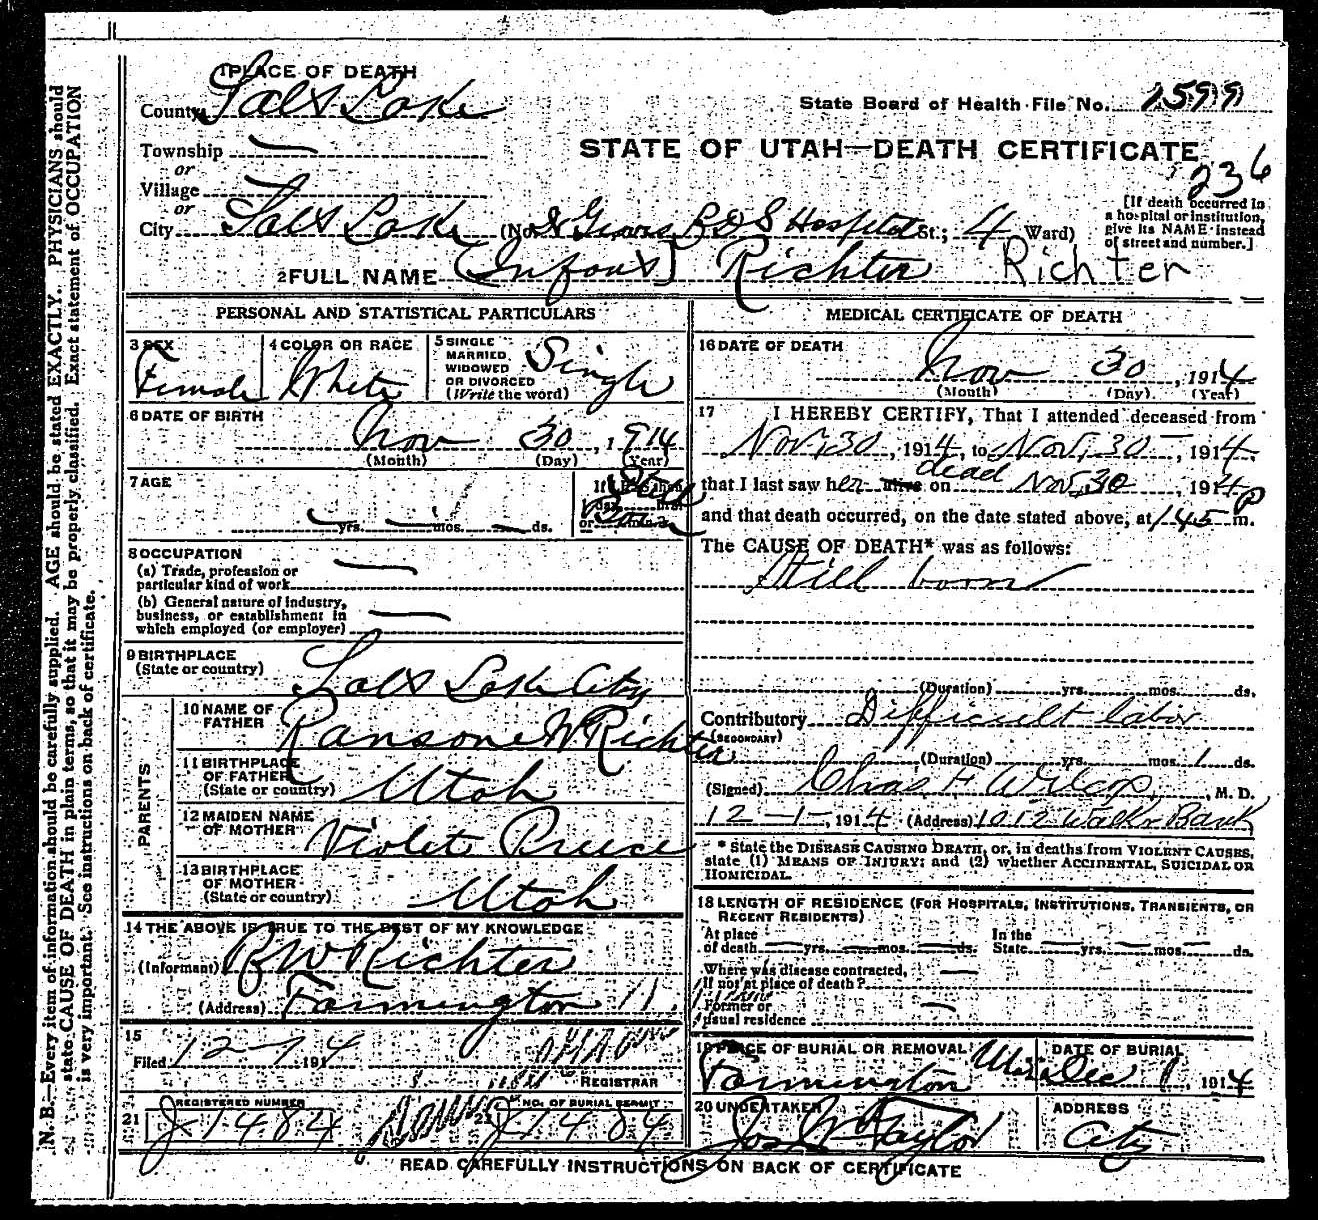 1 PLACE OF DEATH
County Salt Lake
State Board of Health File No. 1599
Township —
or
STATE OF UTAH—DEATH CERTIFICATE
236
Village
or
City Salt Lake (No. Groves L D S Hospital St.; 4 Ward)
[If death occurred in
a hospital or institution,
give its NAME instead
of street and number.]
2 FULL NAME (Infant) Richter Richter
PERSONAL AND STATISTICAL PARTICULARS
3 SEX
Female
4 COLOR OR RACE
White
5 SINGLE
MARRIED
WIDOWED
OR DIVORCED
(Write the word)
Single
6 DATE OF BIRTH
Nov 30, 1914
(Month) (Day) (Year)
7 AGE
— yrs. — mos. — ds.
Still
Born
8 OCCUPATION
(a) Trade, profession or
particular kind of work —
(b) General nature of industry,
business, or establishment in
which employed (or employer) —
9 BIRTHPLACE
(State or country)
Salt Lake City
PARENTS
10 NAME OF
FATHER
Ransone W Richter
11 BIRTHPLACE
OF FATHER
(State or country)
Utah
12 MAIDEN NAME
OF MOTHER
Violet
13 BIRTHPLACE
OF MOTHER
(State or country)
Utah
14 THE ABOVE IS TRUE TO THE BEST OF MY KNOWLEDGE
(Informant) R W Richter
(Address) Farmington
15
Filed 12-1 1914
REGISTRAR
21 REGISTERED NUMBER
J 1484
22 NO. OF BURIAL PERMIT
J 1484
MEDICAL CERTIFICATE OF DEATH
16 DATE OF DEATH
Nov 30, 1914
(Month) (Day) (Year)
17 I HEREBY CERTIFY, That I attended deceased from
Nov, 30, 1914, to Nov, 30 —, 1914,
that I last saw her alive dead on Nov, 30 1914
and that death occurred, on the date stated above, at 1 45 P m.
The CAUSE OF DEATH* was as follows:
Still born
(Duration) yrs. mos. ds.
Contributory Difficult labor
(SECONDARY)
(Duration) yrs. mos. 1 ds.
(Signed) Chas F Wilcox, M. D.
12-1-, 1914 (Address) 1012 Walker Bank
* State the DISEASE CAUSING DEATH, or, in deaths from VIOLENT CAUSES,
state (1) MEANS OF INJURY; and (2) whether ACCIDENTAL, SUICIDAL OR
HOMICIDAL.
18 LENGTH OF RESIDENCE (FOR HOSPITALS, INSTITUTIONS, TRANSIENTS, OR
RECENT RESIDENTS)
At place
of death — yrs. — mos. — ds.
In the
State — yrs. — mos. — ds.
Where was disease contracted,
If not at place of death? —
Former or
usual residence —
19 PLACE OF BURIAL OR REMOVAL
Farmington
DATE OF BURIAL
Dec 1 1914
20 UNDERTAKER
Jos W Taylor
ADDRESS
City
READ CAREFULLY INSTRUCTIONS ON BACK OF CERTIFICATE
N. B.—Every item of information should be carefully supplied. AGE should be stated EXACTLY. PHYSICIANS should
state CAUSE OF DEATH in plain terms, so that it may be properly classified. Exact statement of OCCUPATION
is very important. See instructions on back of certificate.